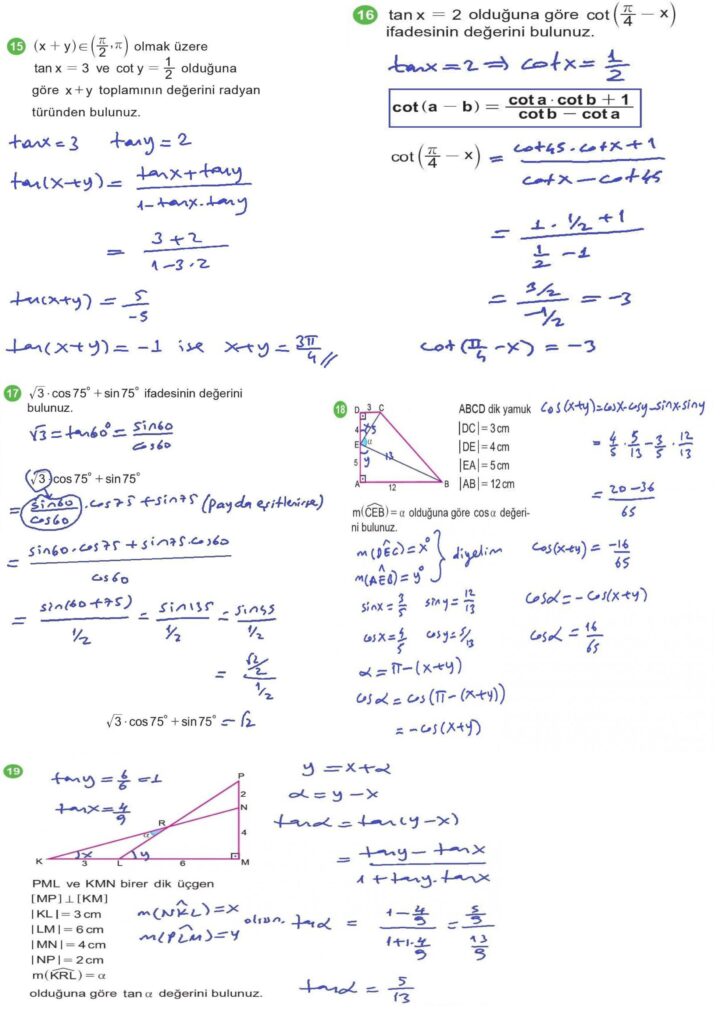 15 (x + y) ∈ (π/2, π) olmak üzere
tan x = 3 ve cot y = 1/2 olduğuna
göre x + y toplamının değerini radyan
türünden bulunuz.
tanx = 3 tany = 2
tan(x+y) = (tanx + tany)/(1 - tanx.tany)
= (3+2)/(1-3·2)
tan(x+y) = 5/-5
tan(x+y) = -1 ise x+y = 3π/4 //
16 tan x = 2 olduğuna göre cot(π/4 − x)
ifadesinin değerini bulunuz.
tanx = 2 ⇒ cotx = 1/2
cot (a − b) = (cot a · cot b + 1)/(cot b − cot a)
cot(π/4 − x) = (cot45 · cotx + 1)/(cotx − cot45)
= (1 · 1/2 + 1)/(1/2 − 1)
= (3/2)/(-1/2) = -3
cot(π/4 − x) = -3
17 √3 · cos 75° + sin 75° ifadesinin değerini
bulunuz.
√3 = tan60° = sin60/cos60
√3 · cos 75° + sin 75°
= sin60/cos60 · cos75 + sin75 (payda eşitlenirse)
= (sin60·cos75 + sin75·cos60)/cos60
= sin(60+75)/(1/2) = sin135/(1/2) = sin45/(1/2)
= (√2/2)/(1/2)
√3 · cos 75° + sin 75° = √2
18
D 3 C
4 x 5
E α
5 y 13
A 12 B
ABCD dik yamuk
|DC| = 3 cm
|DE| = 4 cm
|EA| = 5 cm
|AB| = 12 cm
m(CEB) = α olduğuna göre cos α değeri-
ni bulunuz.
m(DEC) = x°
m(AEB) = y° } diyelim
sinx = 3/5 siny = 12/13
cosx = 4/5 cosy = 5/13
α = π − (x+y)
cosα = cos(π − (x+y))
= −cos(x+y)
cos(x+y) = cosx·cosy − sinx·siny
= 4/5 · 5/13 − 3/5 · 12/13
= (20 − 36)/65
cos(x+y) = -16/65
cosα = −cos(x+y)
cosα = 16/65
19
tany = 6/6 = 1
tanx = 4/9
P
2
N
R
α 4
K x L y M
3 6
PML ve KMN birer dik üçgen
[MP] ⊥ [KM]
|KL| = 3 cm
|LM| = 6 cm
|MN| = 4 cm
|NP| = 2 cm
m(KRL) = α
olduğuna göre tan α değerini bulunuz.
m(NKL) = x
m(PLM) = y olsun.
y = x + α
α = y − x
tanα = tan(y − x)
= (tany − tanx)/(1 + tany·tanx)
tanα = (1 − 4/9)/(1 + 1·4/9) = (5/9)/(13/9)
tanα = 5/13